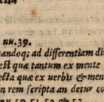 nu.39.
andoq; ad differentiam di
est qua tantum ex mente
ecta quæ ex verbis & men
rem scripta an detur